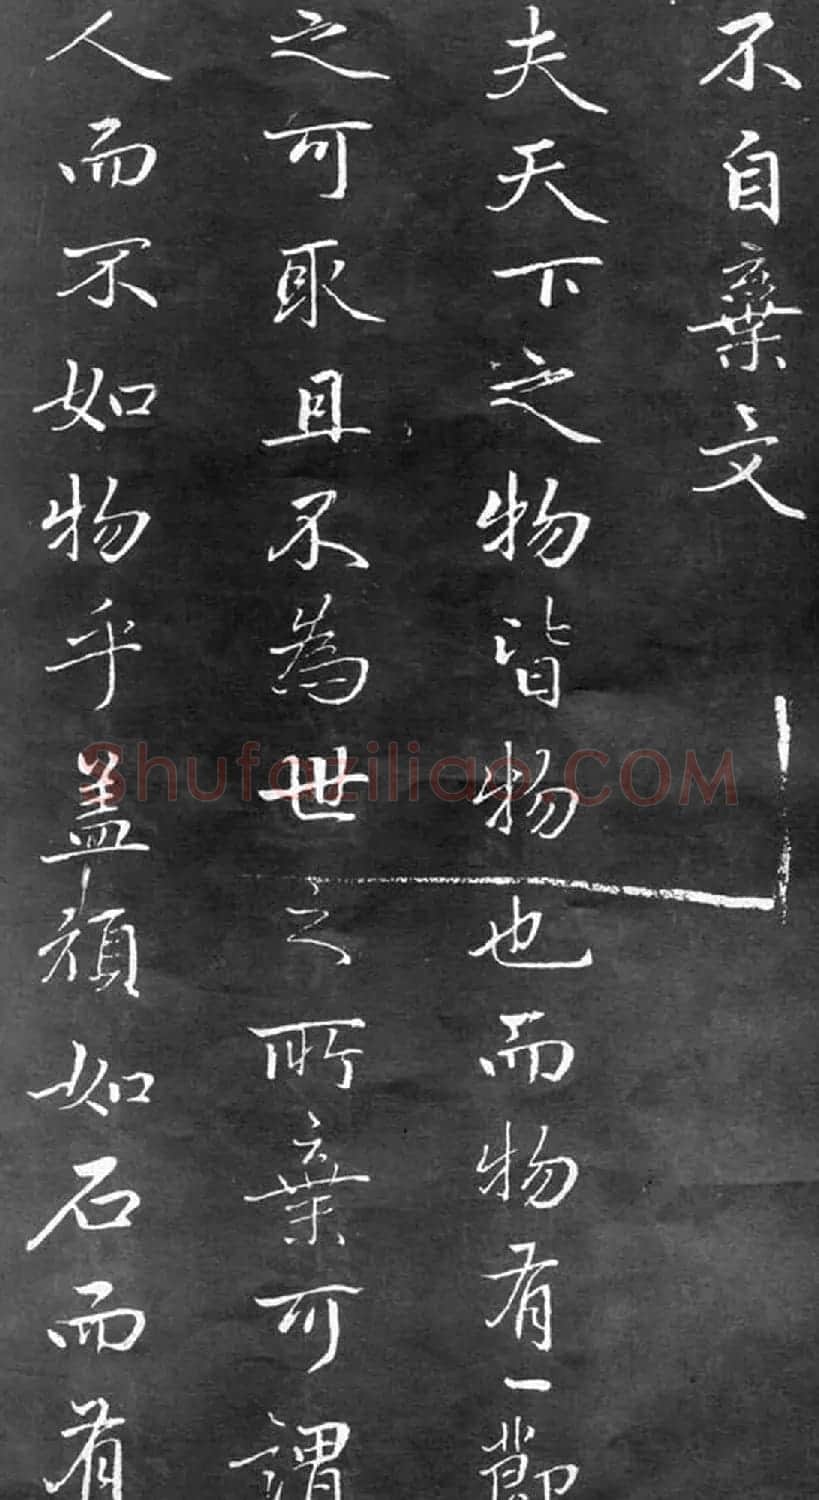 不自棄文
夫天下之物皆物也而物有一節
之可取且不為世之所棄可謂
人而不如物乎蓋頑如石而有
Shufaziliao.COM